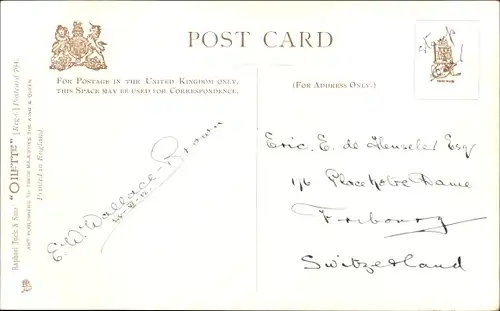 POST CARD
FOR POSTAGE IN THE UNITED KINGDOM ONLY.
THIS SPACE MAY BE USED FOR CORRESPONDENCE.
(FOR ADDRESS ONLY.)
Stamp
Raphael Tuck & Sons' "OILETTE" [Regd.] Postcard 794.
ART PUBLISHERS TO THEIR MAJESTIES THE KING & QUEEN
Printed in England.
E. W. Wallace-Brown
Eric. E. de Heuseler Esq
176 Place Notre Dame
Fribourg
Switzerland